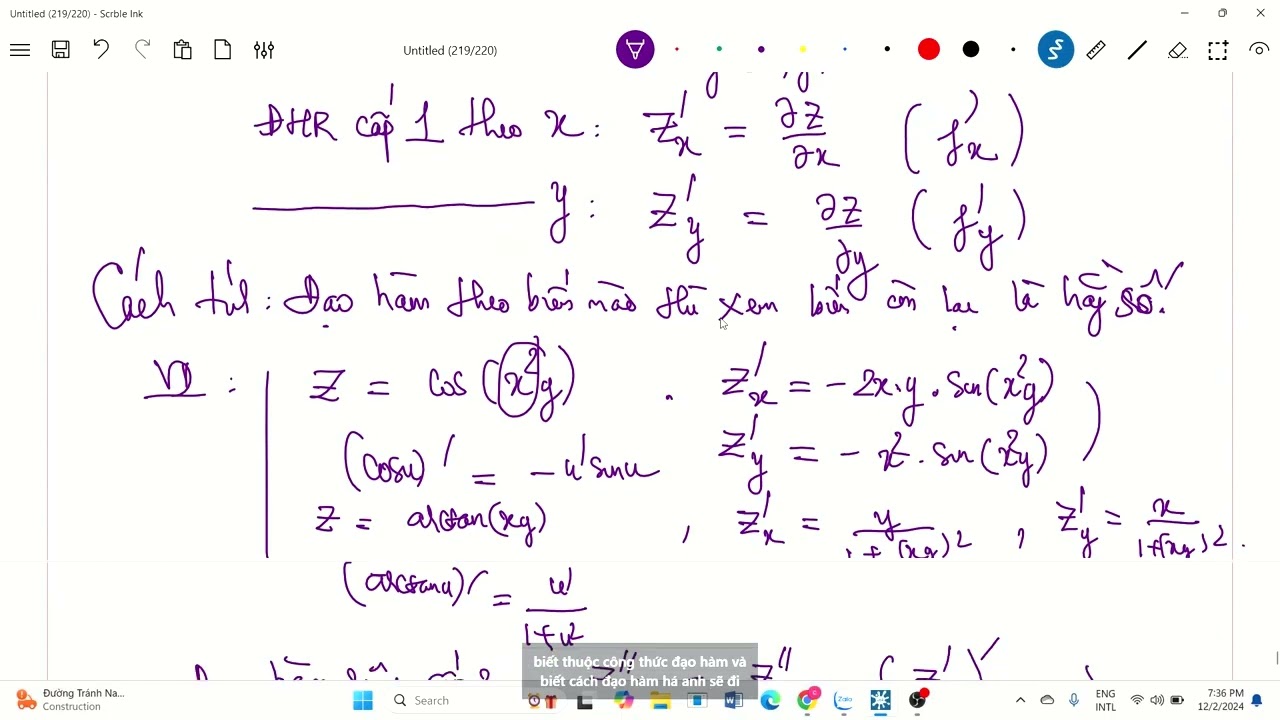 Untitled (219/220) - Scrble Ink
Untitled (219/220)
ĐHR cấp 1 theo x: Z'x = ∂Z/∂x (f'x)
y: Z'y = ∂Z/∂y (f'y)
Cách tính: Đạo hàm theo biến nào thì xem biến còn lại là hằng số.
VD: Z = cos(x²y) . Z'x = -2x.y.sin(x²y)
(cosu)' = -u'sinu Z'y = -x².sin(x²y)
Z = arctan(xy) , Z'x = y/1+(xy)² , Z'y = x/1+(xy)².
(arctanu)' = u'/1+u²
biết thuộc công thức đạo hàm và
biết cách đạo hàm há anh sẽ đi
Đường Tránh Na...
Construction
Search
Zalo
ENG
INTL
7:36 PM
12/2/2024